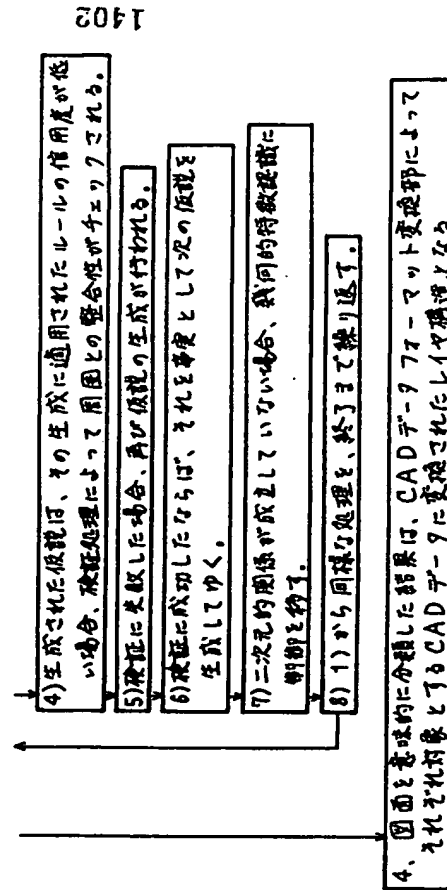 4)生成された仮説は、その生成に適用されたルールの信用度が低
い場合、検証処理によって周囲との整合性がチェックされる。
5)検証に失敗した場合、再び仮説の生成が行われる。
6)検証に成功したならば、それを事実として次の仮説を
生成してゆく。
7)二次元的関係が成立していない場合、幾何的特徴認識に
制御を移す。
8)1)から同様な処理を、終了まで繰り返す。
4、図面を意味的に分類した結果は、CADデータフォーマット変換部によって
それぞれ対象とするCADデータに変換されたレイヤ構造となる
1402